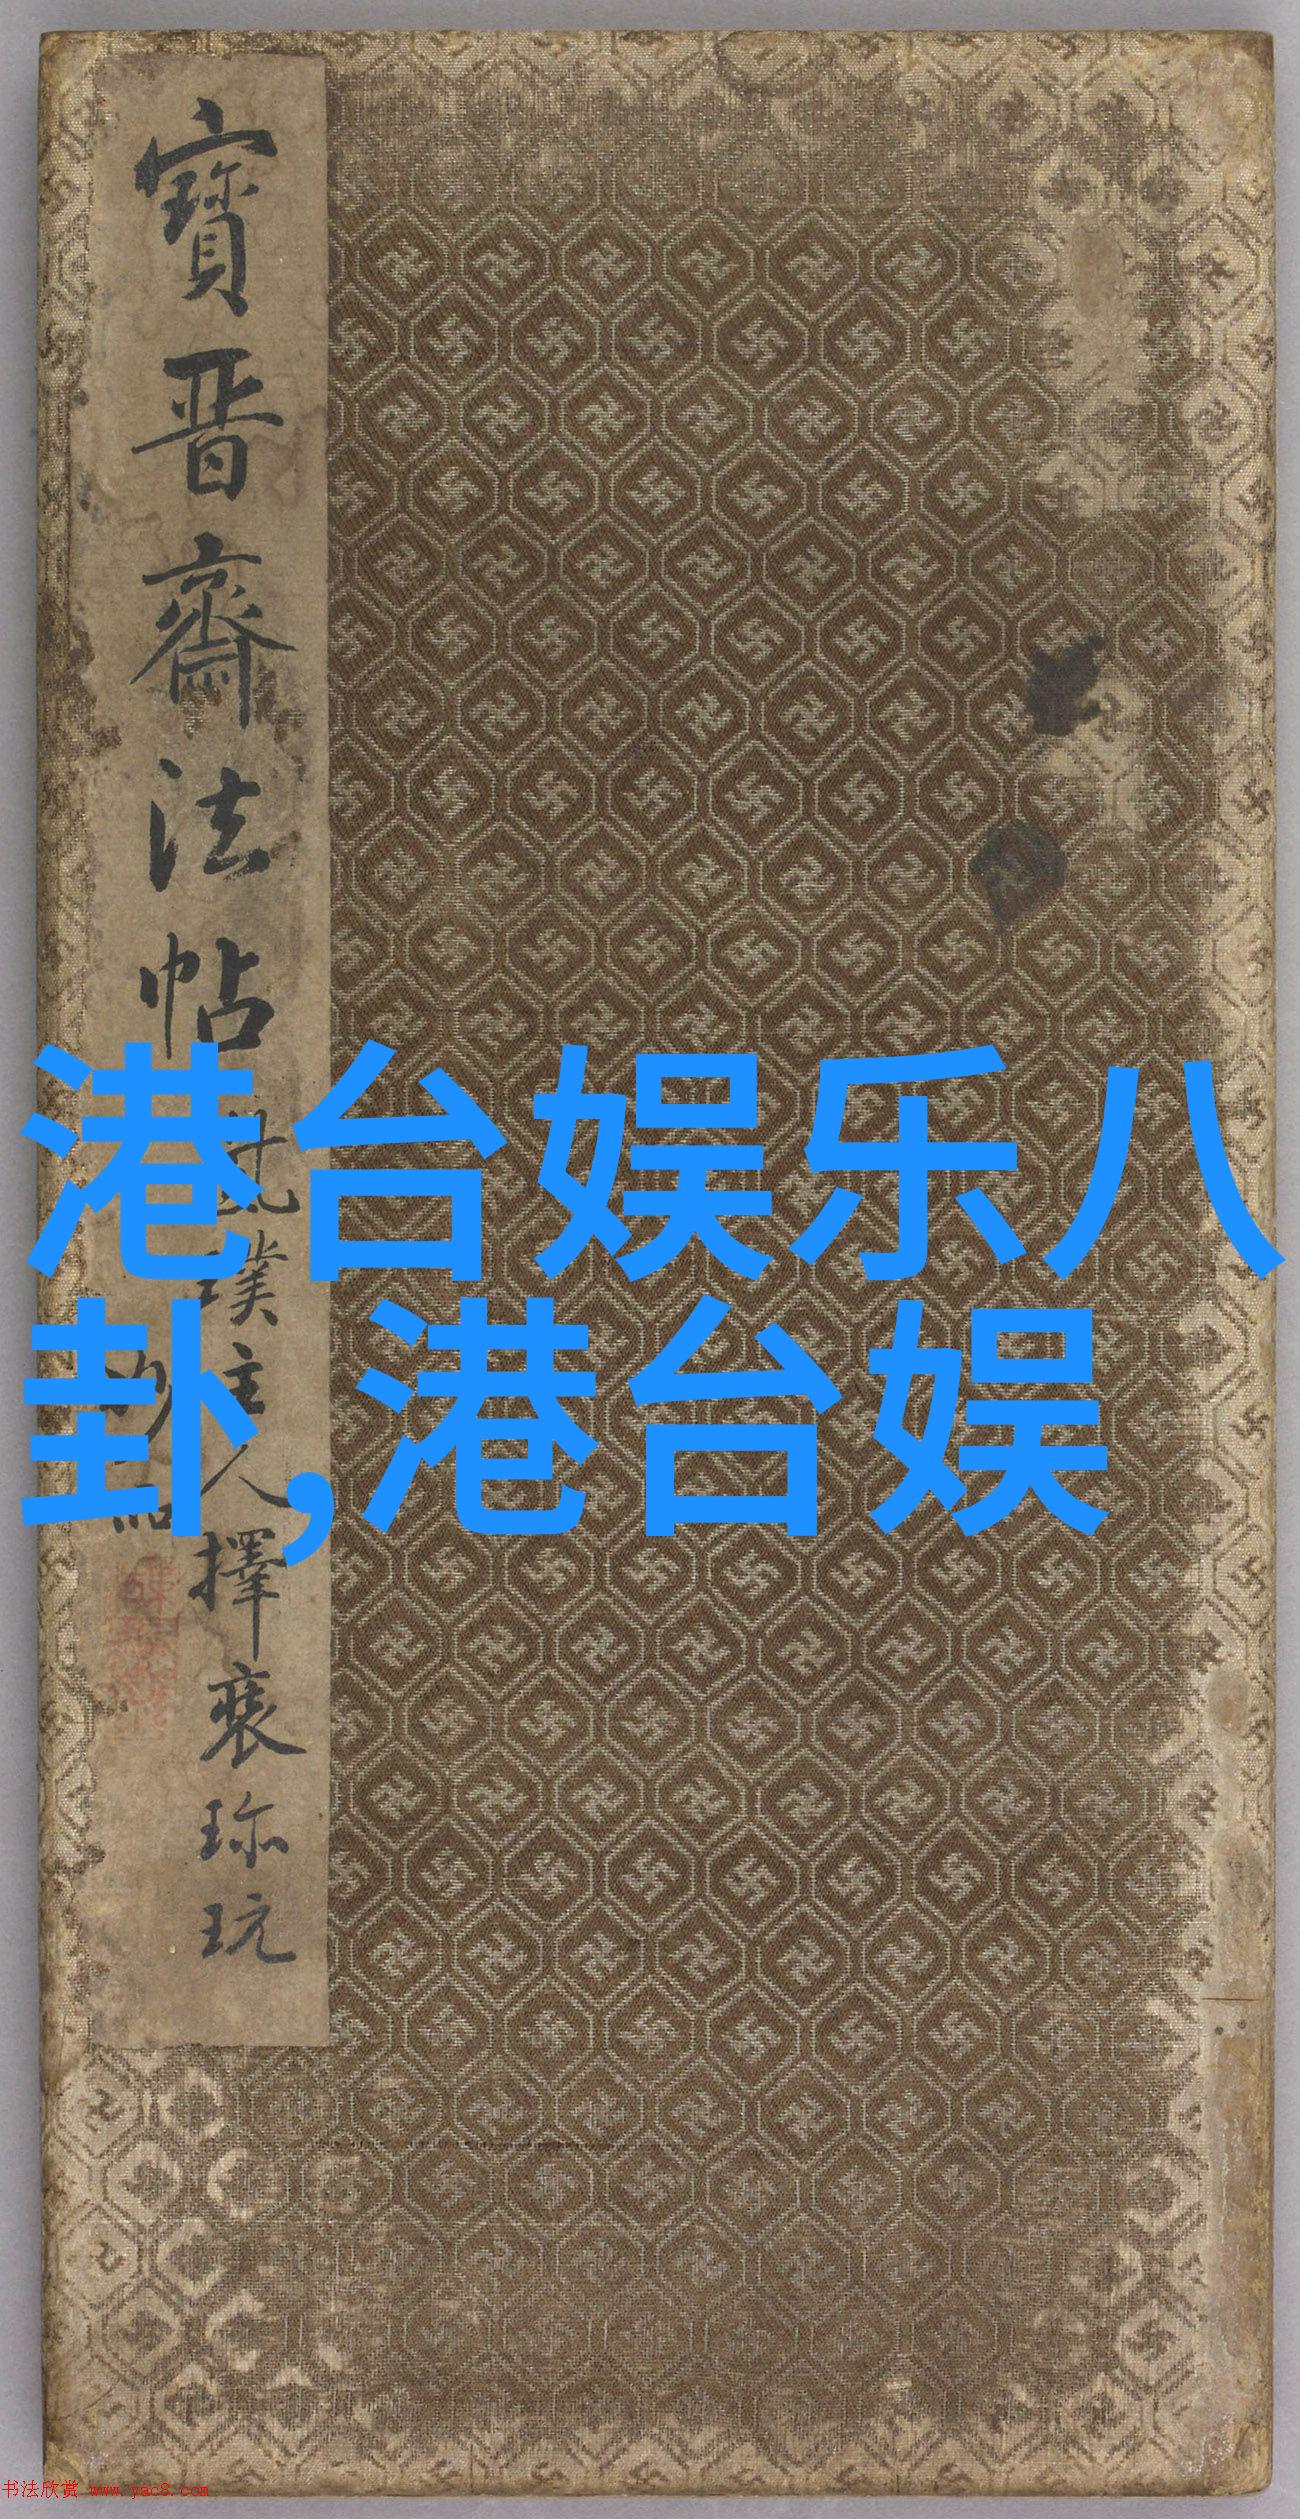 寶晋齋法帖
璞主人擇裘珎玩
港台娱乐八
卦,港台娱
书法欣赏 www.yac8.com